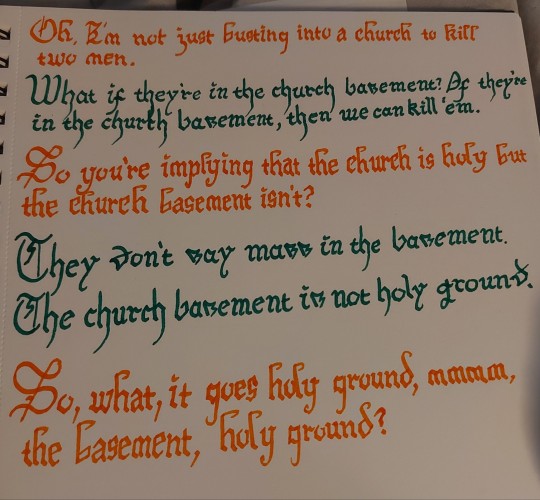 Oh, I'm not just busting into a church to kill
two men.
What if they're in the church basement? If they're
in the church basement, then we can kill 'em.
So you're implying that the church is holy but
the church basement isn't?
They don't say mass in the basement.
The church basement is not holy ground.
So, what, it goes holy ground, mmmm,
the basement, holy ground?